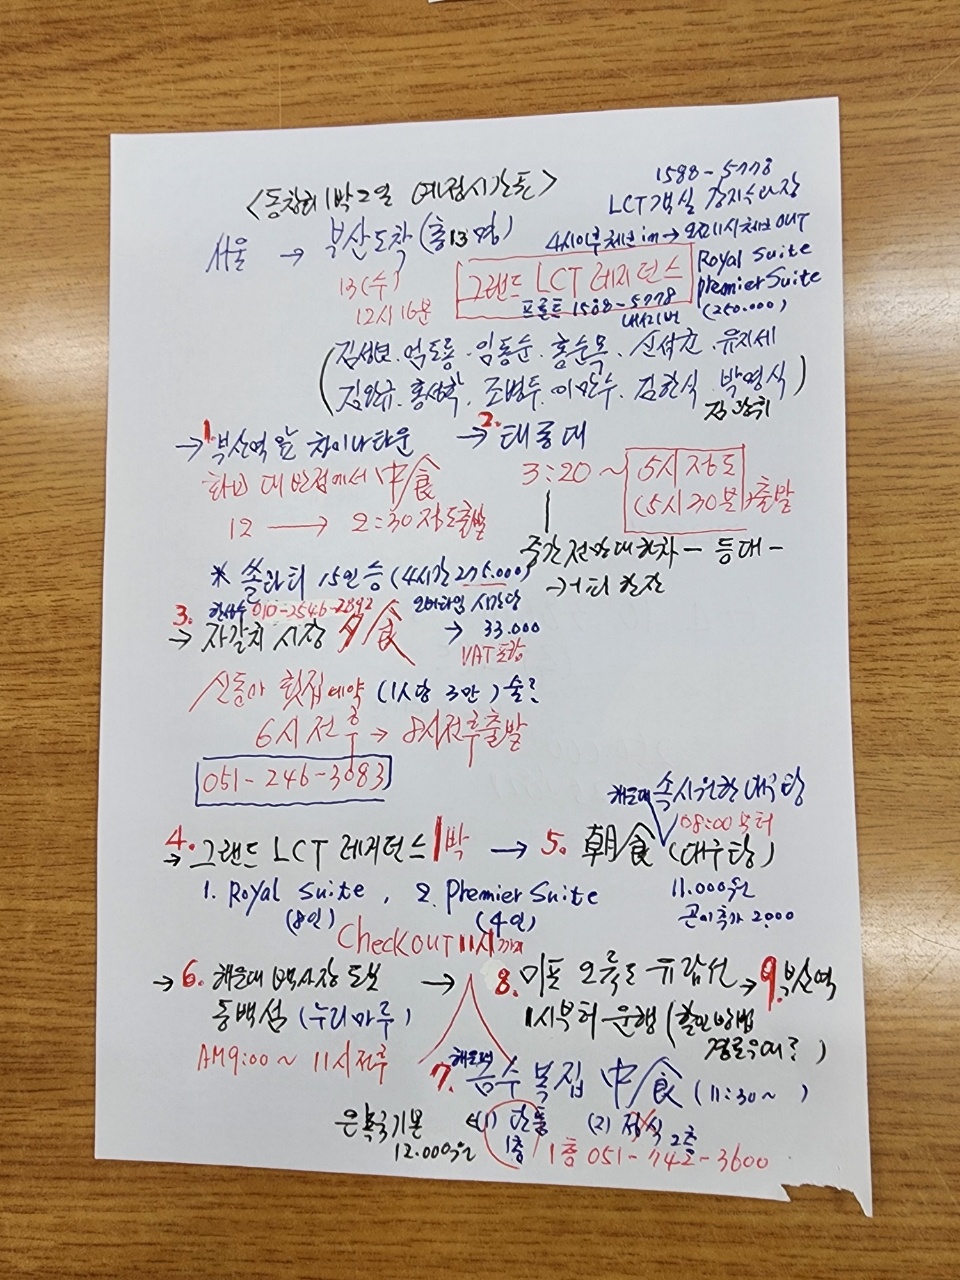 <동창회 1박2일 예정시간표>
1588-5778
LCT 객실 강지수과장
서울 → 부산도착 (총13명)
4시이후 체크 in → 오전11시 체크 OUT
13(수)
12시16분
그랜드 LCT 레지던스
프론트 1588-5778
내선1번
Royal Suite
Premier Suite
(250.000)
엄도용 · 임동순 · 홍순목 ·
조병두 · 이만수 · 김한식 · 박영식)
→ 1. 부산역 앞 차이나타운
→ 2. 태종대
대반점에서 中食
12 → 2:30 정도출발
3:20 ~ 5시정도
(5시30분)출발
중간 전망대 하차 - 등대 -
* 쏠라티 15인승 (4시간 275.000)
010-2546-2892
오버타임 시간당
3. → 자갈치 시장 夕食
→ 33.000
VAT포함
신동아 횟집예약 (1人당 3만) 술?
6시 전후 → 8시전후출발
051-246-3083
해운대 속시원한 대구탕
08:00부터
4. → 그랜드 LCT 레지던스 1박 → 5. 朝食 (대구탕)
1. Royal Suite , 2. Premier Suite
(8인) (4인)
11.000원
곤이추가 2.000
Check OUT 11시까지
→ 6. 해운대 백사장 도보
동백섬 (누리마루)
AM9:00~ 11시전후
→ 8. 미포 오륙도 유람선 → 9. 부산역
1시부터 운행 (할인방법
경로우대?)
7. 해운대 금수복집 中食 (11:30~ )
은복국기본
12.000원
(1) 단품
1층
(2) 정식 2층
1층 051-742-3600